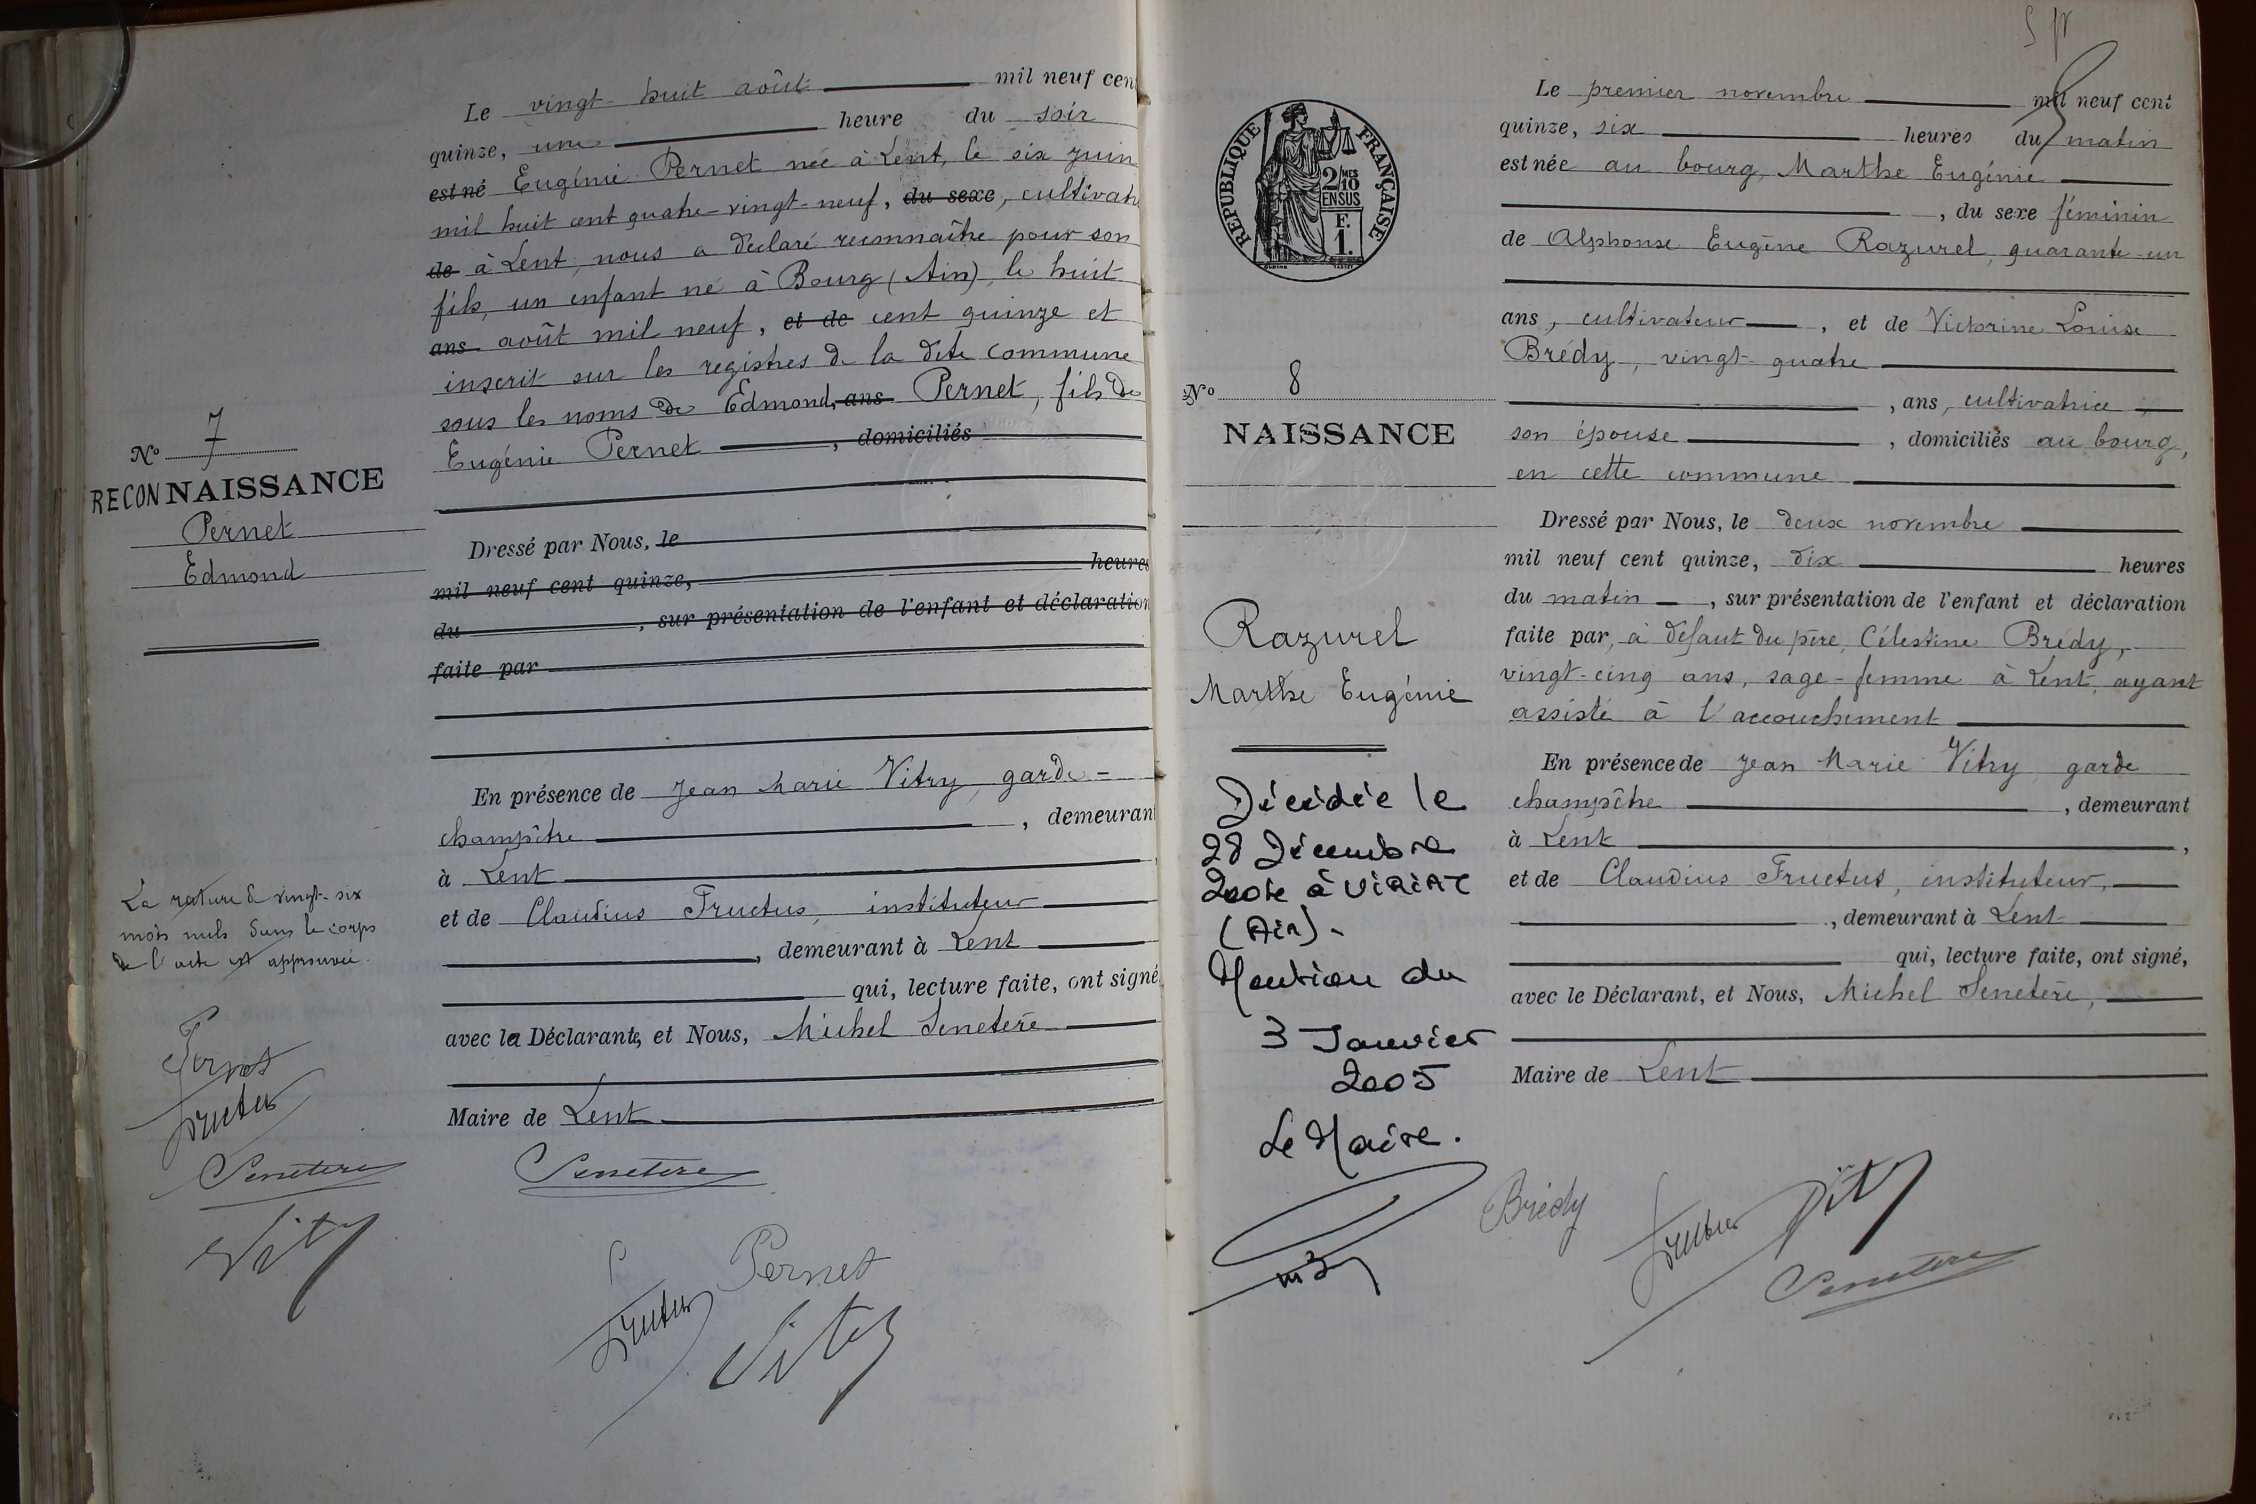 Le vingt-huit août mil neuf cent
quinze, une heure du soir
est né Eugénie Pernet née à Lent, le six juin
mil huit cent quatre-vingt-neuf, du sexe, cultivatr
de à Lent, nous a déclaré reconnaître pour son
fils, un enfant né à Bourg (Ain), le huit
ans août mil neuf, et de cent quinze et
inscrit sur les registres de la dite commune
sous les noms de Edmond, ans Pernet, fils de
Eugénie Pernet, domiciliés
No 7
RECONNAISSANCE
Pernet
Edmond
Dressé par Nous, le
mil neuf cent quinze, heures
du , sur présentation de l'enfant et déclaration
faite par
En présence de Jean Marie Vitry, garde-
champêtre , demeurant
à Lent
et de Claudius Fructus, instituteur
, demeurant à Lent
qui, lecture faite, ont signé
avec la Déclarante, et Nous, Michel Senetère
Maire de Lent
La rature de vingt-six
mots nuls dans le corps
de l'acte est approuvée.
Pernet
Fructus
Senetère
Vitry
Senetère
Pernet
Fructus
Vitry
RÉPUBLIQUE FRANÇAISE
2/10
MES
EN SUS
F.
1.
No 8
NAISSANCE
Razurel
Marthe Eugénie
Décédée le
28 Décembre
2004 à VIRIAT
(Ain).
Mention du
3 Janvier
2005
Le Maire.
Le premier novembre mil neuf cent
quinze, six heures du matin
est née au bourg, Marthe Eugénie
, du sexe féminin
de Alphonse Eugène Razurel, quarante-un
ans, cultivateur , et de Victorine Louise
Brédy, vingt-quatre
, ans, cultivatrice,
son épouse , domiciliés au bourg,
en cette commune
Dressé par Nous, le deux novembre
mil neuf cent quinze, dix heures
du matin , sur présentation de l'enfant et déclaration
faite par, à défaut du père, Célestine Brédy,
vingt-cinq ans, sage-femme à Lent, ayant
assisté à l'accouchement
En présence de Jean Marie Vitry garde
champêtre , demeurant
à Lent ,
et de Claudius Fructus, instituteur,
, demeurant à Lent
qui, lecture faite, ont signé,
avec le Déclarant, et Nous, Michel Senetère,
Maire de Lent
Brédy
Fructus
Vitry
Senetère